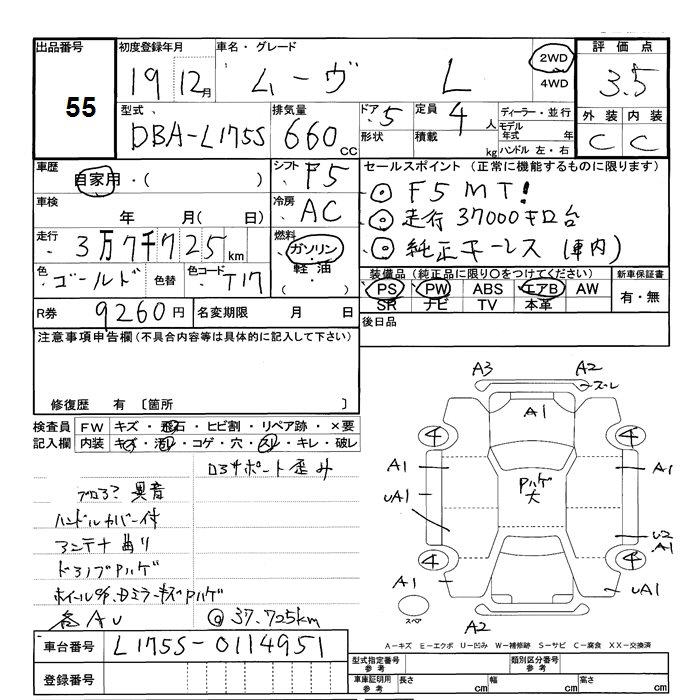 出品番号
55
初度登録年月
19 12月
車名・グレード
ムーヴ L
2WD
4WD
評価点
3.5
外装 内装
C C
型式
DBA-L175S
排気量
660 CC
ドア 5
形状
定員 4 人
積載 kg
ディーラー・並行
モデル年式 年
ハンドル 左・右
車歴
自家用・( )
シフト F5
車検
年 月( 日)
冷房 AC
走行
3万7千725km
燃料
ガソリン
軽油
( ・ )
色 ゴールド
色替
色コード T17
R券 9260円
名変期限 月 日
セールスポイント(正常に機能するものに限ります)
◎ F5 MT!
◎ 走行37000キロ台
◎ 純正キーレス(車内)
装備品(純正品に限り○をつけてください)
PS PW ABS エアB AW
SR ナビ TV 本革
新車保証書
有・無
後日品
注意事項申告欄(不具合内容等は具体的に記入して下さい)
修復歴 有 〔箇所 〕
検査員記入欄
FW キズ・飛石・ヒビ割・リペア跡・×要
内装 キズ・汚れ・コゲ・穴・スレ・キレ・破れ
ロアサポート歪み
異音
ハンドルカバー付
アンテナ曲り
ドアノブPハゲ
各AU
@37.725km
A3 A2
ズレ
A1
4 4
A1 A1
UA1
Pハゲ
大
U2
A1
4 4
A1 UA1
スペア
A2
車台番号 L175S-0114951
登録番号
A-キズ E-エクボ U-凹み W-補修跡 S-サビ C-腐食 XX-交換済
型式指定番号
参考
類別区分番号
参考
車庫証明用
参考
長さ cm
幅 cm
高さ cm